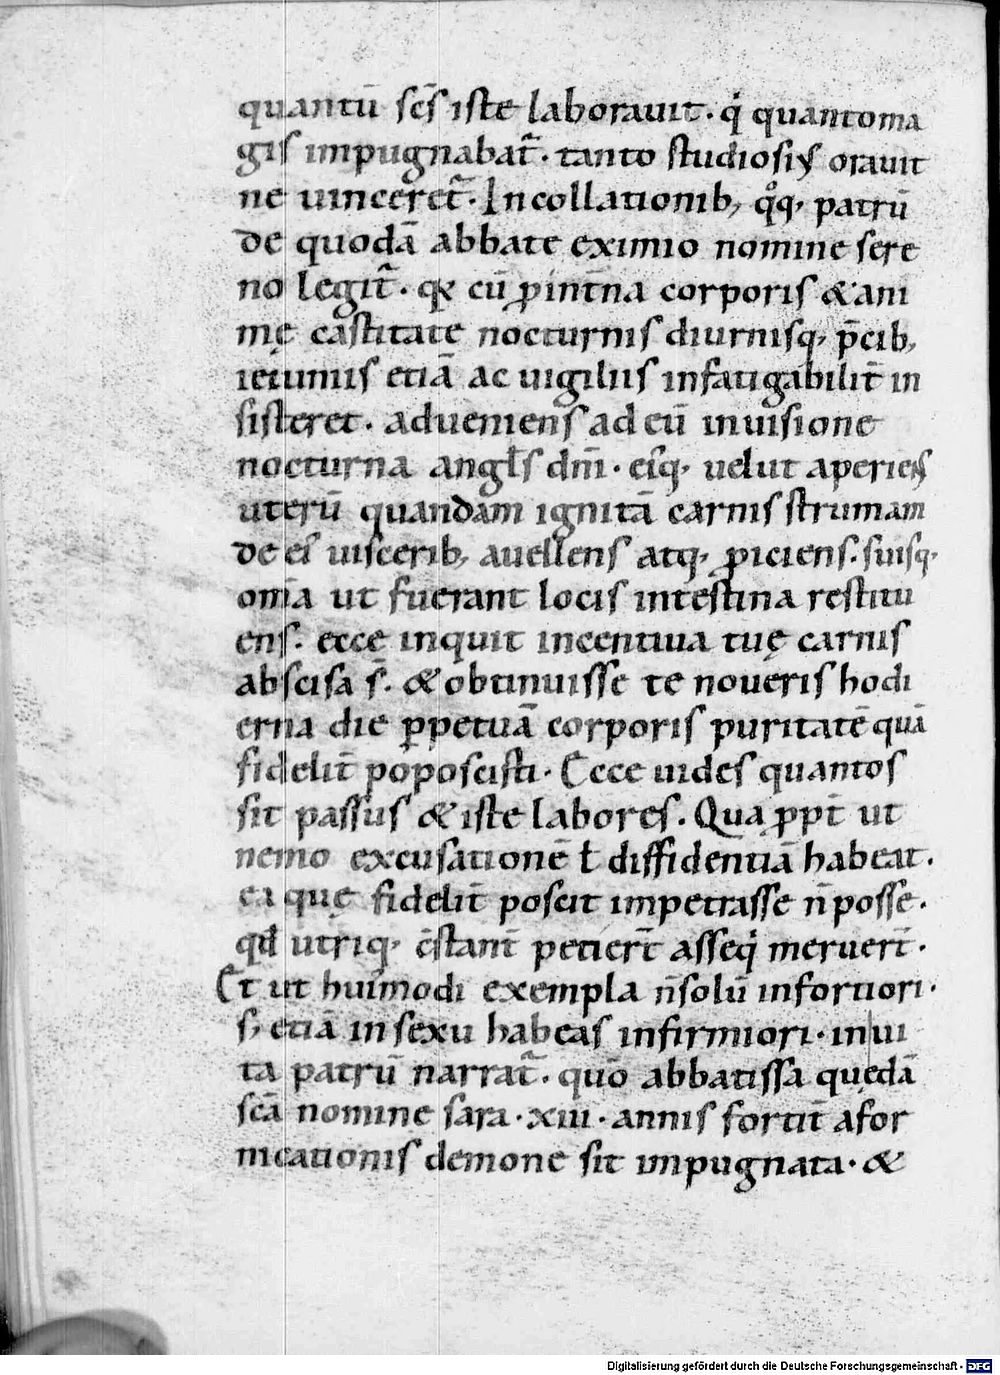 quantū scs̄ iste laborauit. q̇ quantoma
gis impugnabat᷑. tanto studiosiꝰ orauit
ne uinceret᷑. In collationib; q̊q; patrū
de quodā abbate eximio nomine sere
no legit᷑. qꝛ cū ꝓ int̄na corporis & ani
mę castitate nocturnis diurnisq; p̄cib;
ieiuniis etiā ac uigiliis infatigabilit̄ in
sisteret. adueniens ad eū in uisione
nocturna angl̄s dn̄i. ei'q; uelut aperiens
uterū quandam ignitā carnis strumam
de ei' uiscerib; auellens atq; ꝓiciens. suisq;
om̄ia ut fuerant locis intestina restitu
ens. ecce inquit incentiua tuę carnis
abscisa s̄. & obtinuisse te noueris hodi
erna die ꝑpetuā corporis puritatē quā
fidelit̄ poposcisti. Ecce uides quantos
sit passus & iste labores. Qua ꝓpt̄ ut
nemo excusationē ł diffidentiā habeat.
ea quę fidelit̄ poscit impetrasse n̄ posse.
qđ utriq; c̄stant̄ petiert̄ asseq̇ meruert̄.
Et ut hui'modi exempla n̄ solū in fortiori.
s; etiā in sexu habeas infirmiori. in ui
ta patrū narrat᷑. quō abbatissa quędā
scā nomine sara. xiii. annis fortit̄ a for
nicationis demone sit impugnata. &
Digitalisierung gefördert durch die Deutsche Forschungsgemeinschaft - DFG